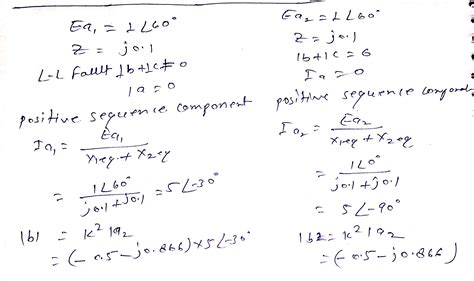 Ea₁ = 1∠60°
Z = j0.1
L-L Fault Ib+Ic≠0
Ia = 0
positive sequence component
Ia₁ = Ea₁ / X₁eq + X₂eq
= 1∠60° / j0.1+j0.1 = 5∠-30°
Ib1 = K² Ia₂
= (-0.5-j0.866)×5∠-30°
Ea₂ = 1∠60°
Z = j0.1
Ib+Ic = 6
Ia = 0
positive sequence
Ia₂ = Ea₂ / X₁eq + X₂eq
= 1∠0° / j0.1+j0.1
= 5∠-90°
Ib2 = K² Ia₂
= (-0.5-j0.866)